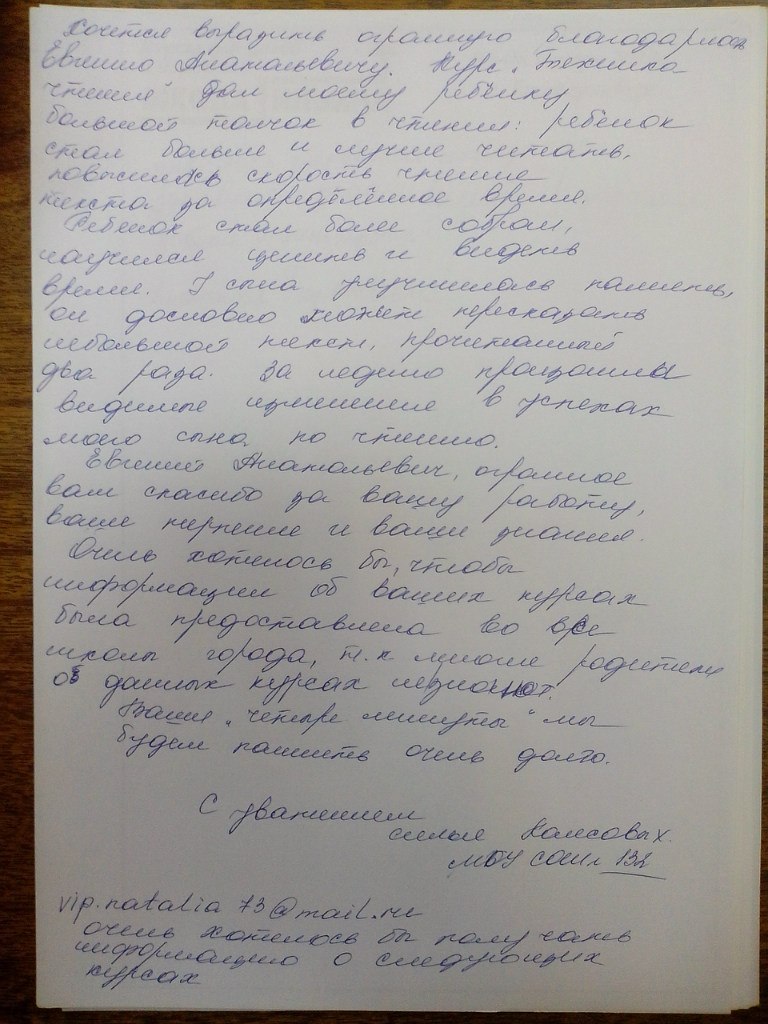 Хочется выразить огромную благодарность
Евгению Анатольевичу. Курс „Техника
чтения" дал моему ребёнку
большой толчок в чтении: ребёнок
стал больше и лучше читать,
повысилась скорость чтение
текста за определённое время.
Ребёнок стал более собран,
научился ценить и видеть
время. У сына улучшилась память,
он дословно может пересказать
небольшой текст, прочитанный
два раза. За неделю произошли
видимые изменение в успехах
моего сына по чтению.
Евгений Анатольевич, огромное
вам спасибо за вашу работу,
ваше терпение и ваши знания.
Очень хотелось бы, чтобы
информация об ваших курсах
была предоставлена во все
школы города, т.к многие родители
об данных курсах незнают.
Ваши „четыре минуты" мы
будем помнить очень долго.
С уважением
семья
МБУ СОШ 132
vip.natalia 73@mail.ru
очень хотелось бы получать
информацию о следующих
курсах